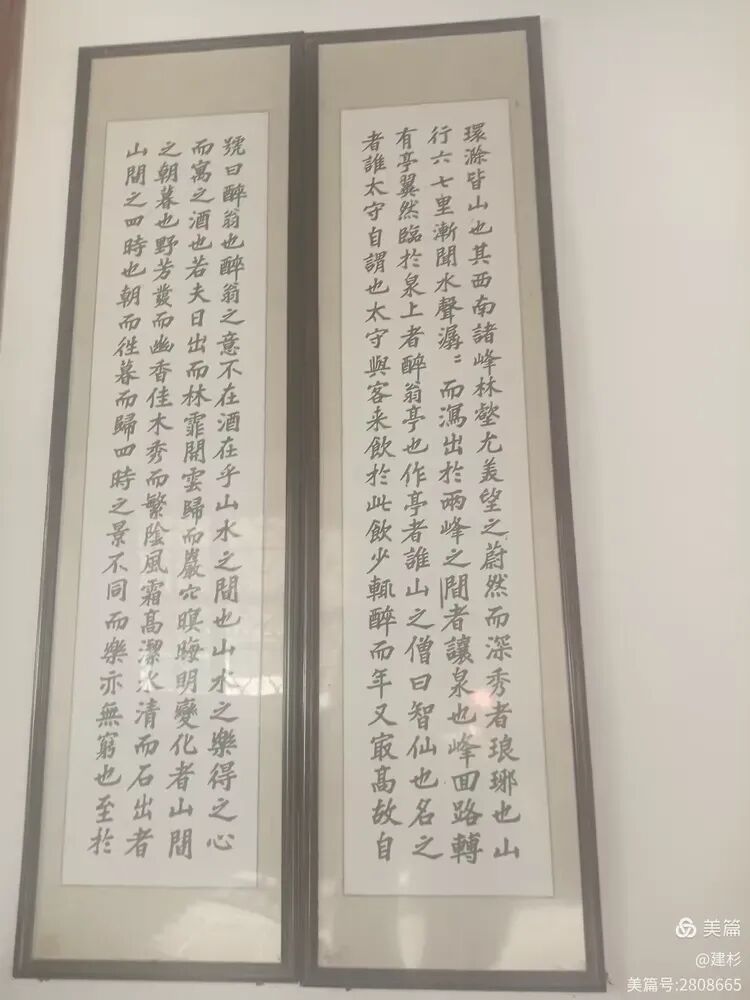 環滁皆山也其西南諸峰林壑尤美望之蔚然而深秀者琅琊也山
行六七里漸聞水聲潺〻而瀉出於兩峰之間者讓泉也峰回路轉
有亭翼然臨於泉上者醉翁亭也作亭者誰山之僧曰智仙也名之
者誰太守自謂也太守與客来飲於此飲少輒醉而年又最高故自
號曰醉翁也醉翁之意不在酒在乎山水之間也山水之樂得之心
而寓之酒也若夫日出而林霏開雲歸而巖穴暝晦明變化者山間
之朝暮也野芳發而幽香佳木秀而繁陰風霜高潔水清而石出者
山間之四時也朝而往暮而歸四時之景不同而樂亦無窮也至於
美篇
@建杉
美篇号:2808665